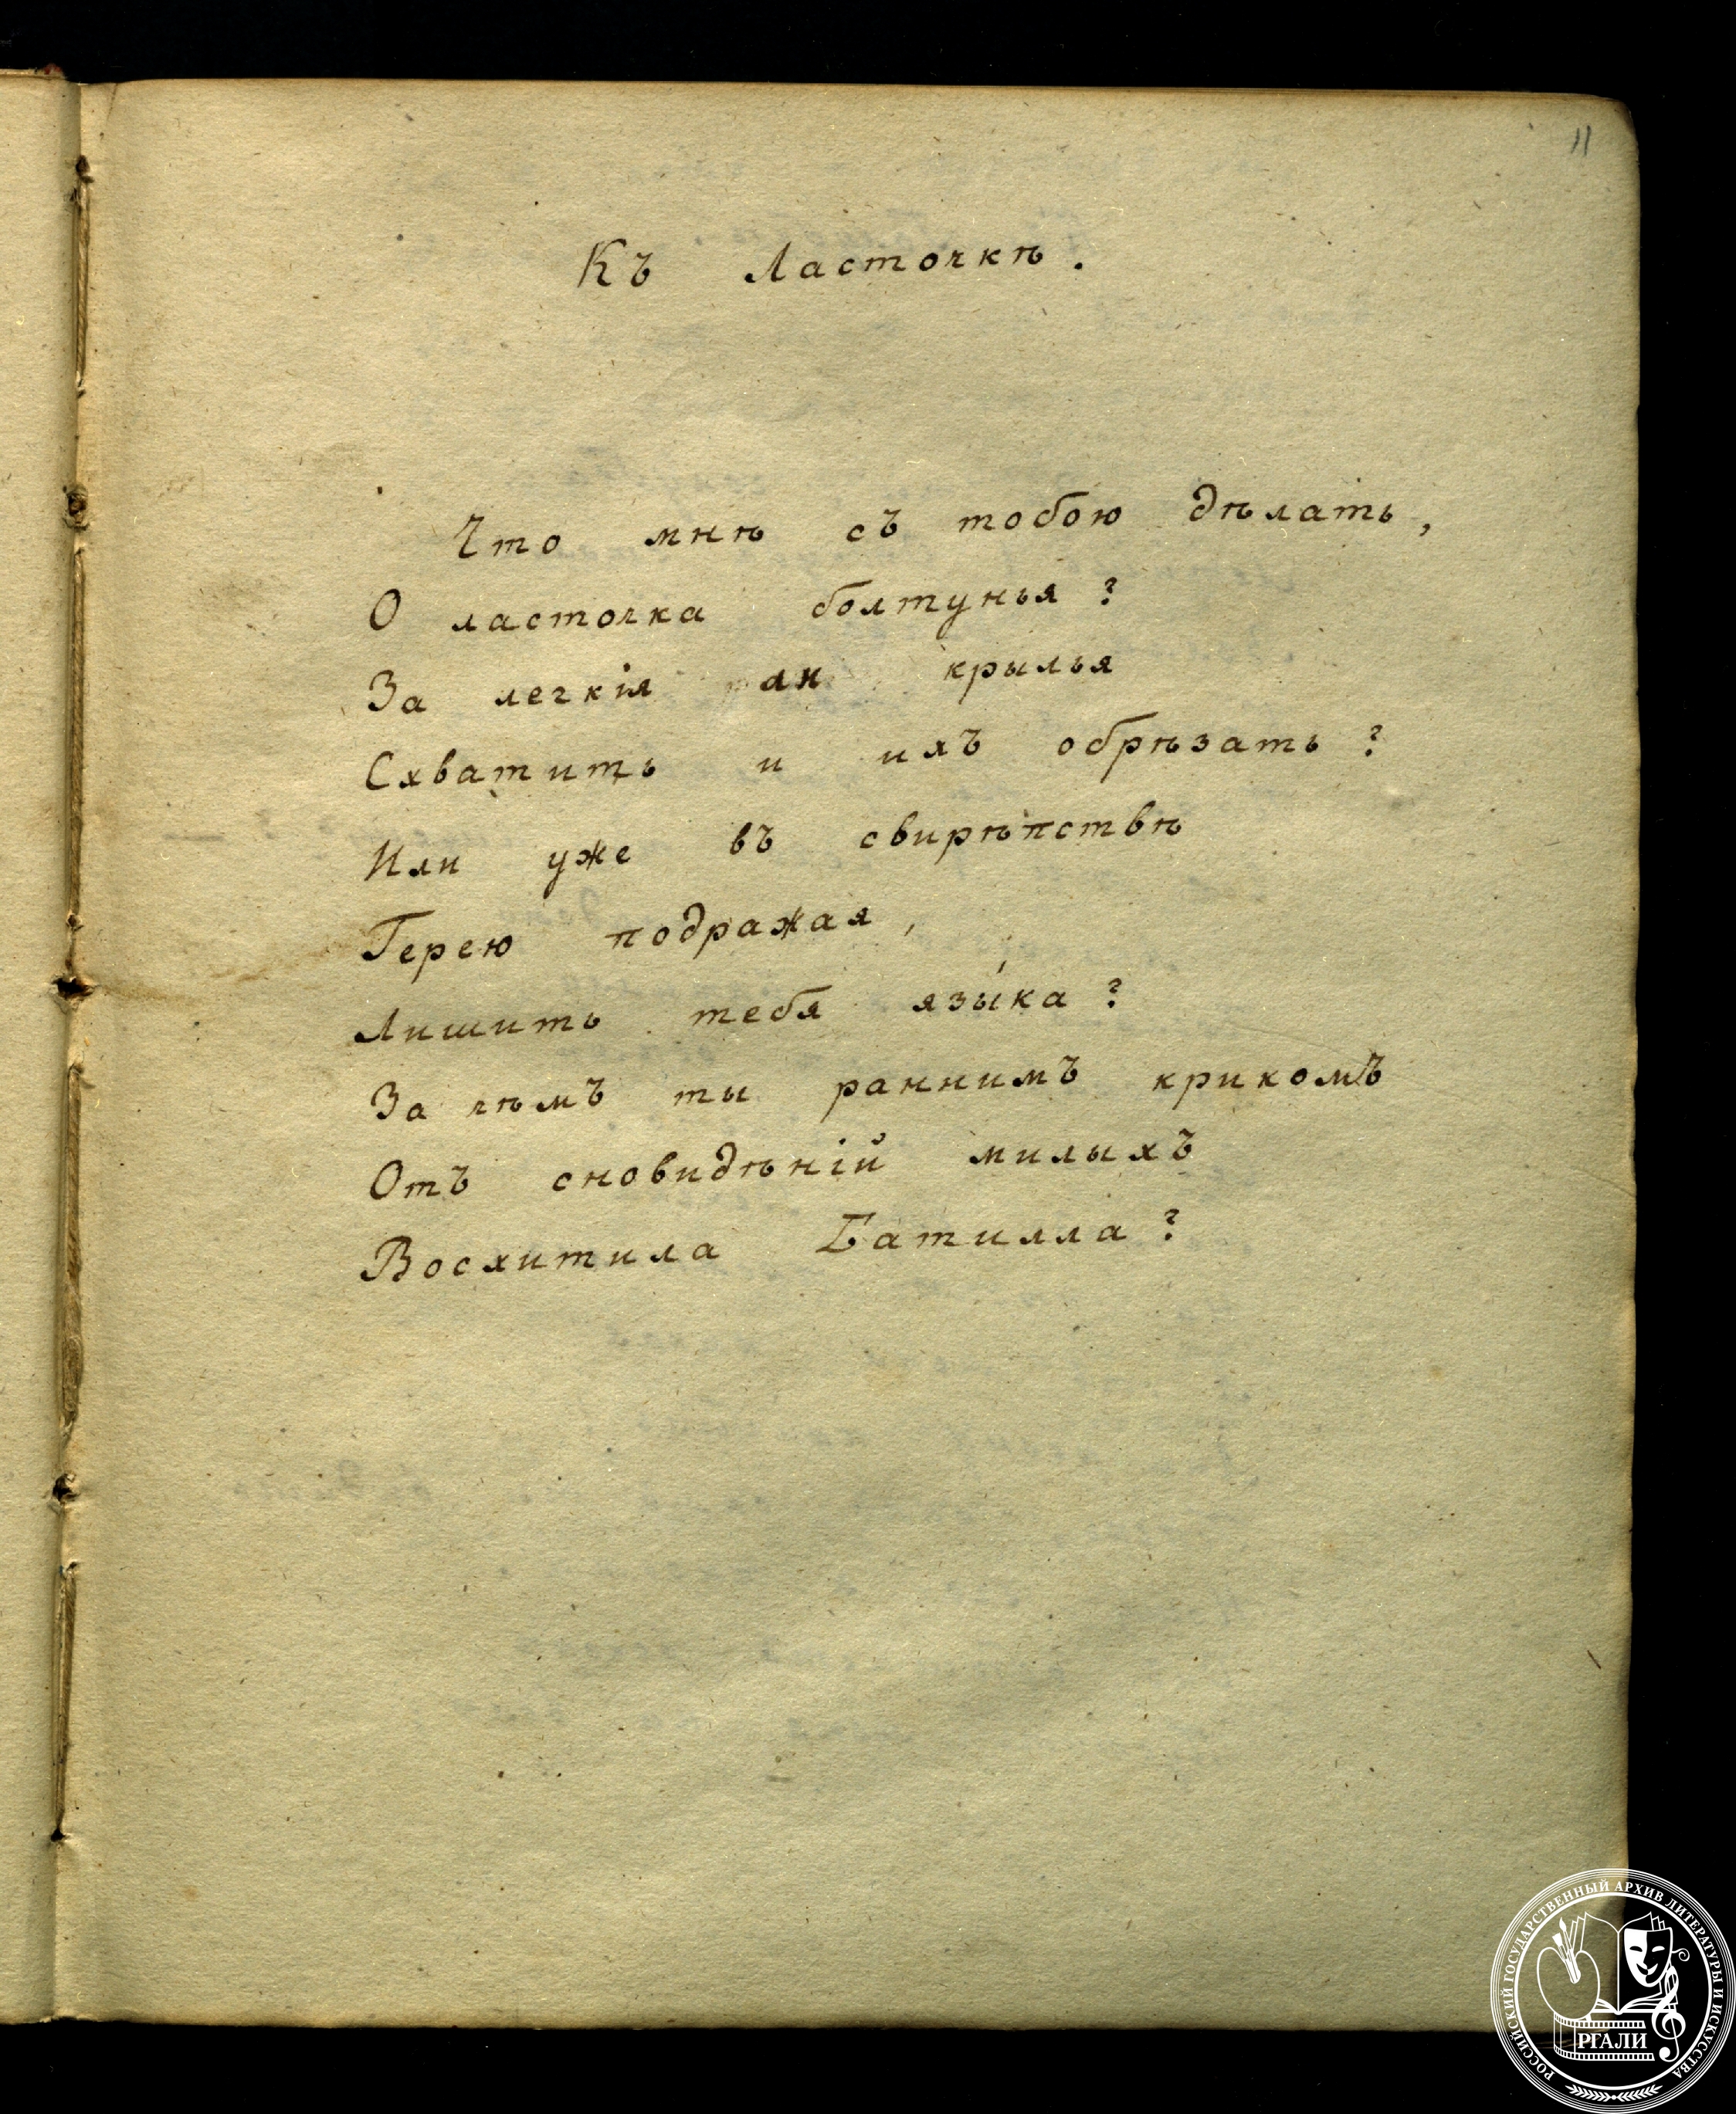 11
Къ Ласточкѣ.
Что мнѣ съ тобою дѣлать,
О ласточка болтунья?
За легкія ли крылья
Схватить и ихъ обрѣзать?
Или уже въ свирѣпствѣ
Терею подражая,
Лишить тебя язы́ка?
За чѣмъ ты раннимъ крикомъ
Отъ сновидѣній милыхъ
Восхитила Батилла?
РОССИЙСКИЙ ГОСУДАРСТВЕННЫЙ АРХИВ ЛИТЕРАТУРЫ И ИСКУССТВА
РГАЛИ